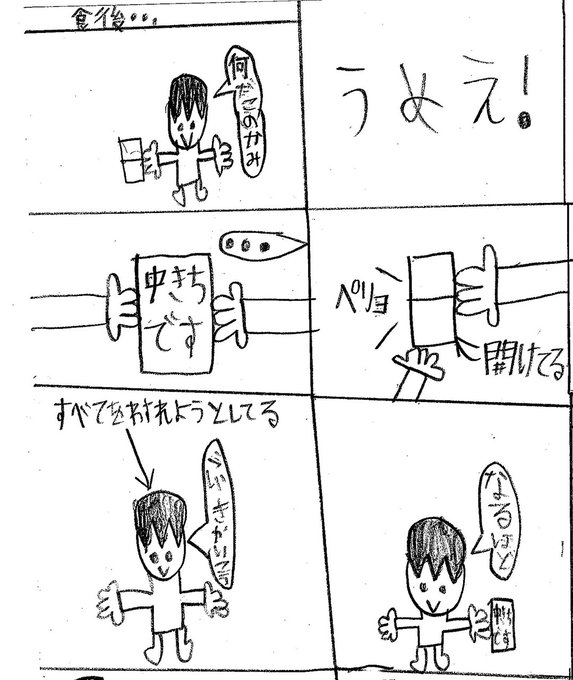 うめえ!
食後・・・
何だこのかみ
ペリョ
開けてる
・・・
中きち
です
なるほど
中きち
です
すべてをわすれようとしてる